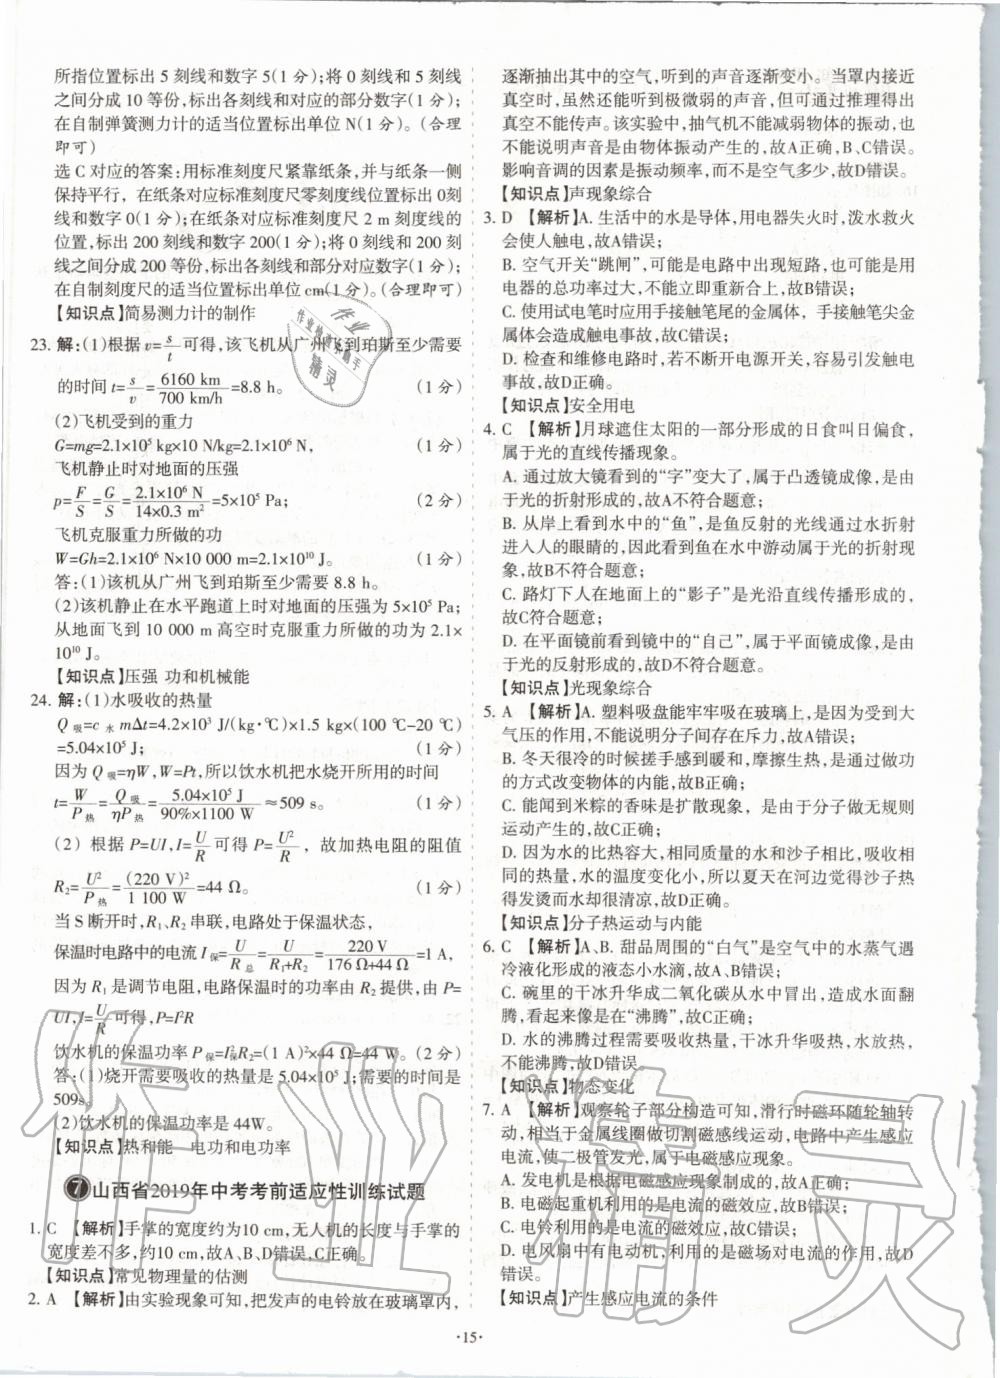 所指位置标出 5 刻线和数字 5(1 分);将 0 刻线和 5 刻线
之间分成 10 等份,标出各刻线和对应的部分数字(1 分);
在自制弹簧测力计的适当位置标出单位 N(1 分)。(合理
即可)
选 C 对应的答案:用标准刻度尺紧靠纸条,并与纸条一侧
保持平行，在纸条对应标准刻度尺零刻度线位置标出 0刻
线和数字 0(1 分);在纸条对应标准刻度尺 2 m 刻度线的
位置,标出 200 刻线和数字 200(1 分);将 0 刻线和 200 刻
线之间分成 200 等份,标出各刻线和部分对应数字(1 分);
在自制刻度尺的适当位置标出单位 cm(1 分)。(合理即可)
【知识点】简易测力计的制作
23. 解:(1)根据 v=s/t 可得,该飞机从广州飞到珀斯至少需要
的时间 t=s/v=6160 km/700 km/h=8.8 h。 (1 分)
(2)飞机受到的重力
G=mg=2.1×10⁵ kg×10 N/kg=2.1×10⁶ N。 (1 分)
飞机静止时对地面的压强
p=F/S=G/S=2.1×10⁶ N/14×0.3 m²=5×10⁵ Pa; (2 分)
飞机克服重力所做的功
W=Gh=2.1×10⁶ N×10 000 m=2.1×10¹⁰ J。 (1 分)
答:(1)该机从广州飞到珀斯至少需要 8.8 h。
(2)该机静止在水平跑道上时对地面的压强为 5×10⁵ Pa;
从地面飞到 10 000 m 高空时克服重力所做的功为 2.1×
10¹⁰ J。
【知识点】压强 功和机械能
24. 解:(1)水吸收的热量
Q吸=c水 mΔt=4.2×10³ J/(kg·℃)×1.5 kg×(100 ℃-20 ℃)
=5.04×10⁵ J; (1 分)
因为 Q吸=ηW,W=Pt,所以饮水机把水烧开所用的时间
t=W/P热=Q吸/ηP热=5.04×10⁵ J/90%×1100 W≈509 s。 (1 分)
(2) 根据 P=UI,I=U/R 可得 P=U²/R，故加热电阻的阻值
R₂=U²/P热=(220 V)²/1 100 W=44 Ω。 (1 分)
当 S 断开时,R₁、R₂ 串联,电路处于保温状态,
保温时电路中的电流 I保=U/R总=U/R₁+R₂=220 V/176 Ω+44 Ω=1 A,
因为 R₁ 是调节电阻,电路保温时的功率由 R₂ 提供,由 P=
UI,I=U/R 可得,P=I²R
饮水机的保温功率 P保=I²保R₂=(1 A)²×44 Ω=44 W。(2 分)
答:(1)烧开需要吸收的热量是 5.04×10⁵ J;需要的时间是
509s。
(2)饮水机的保温功率是 44W。
【知识点】热和能 电功和电功率
7 山西省2019年中考考前适应性训练试题
1. C 【解析】手掌的宽度约为10 cm,无人机的长度与手掌的
宽度差不多,约10 cm,故A、B、D错误,C正确。
【知识点】常见物理量的估测
2. A 【解析】由实验现象可知,把发声的电铃放在玻璃罩内,
逐渐抽出其中的空气,听到的声音逐渐变小。当罩内接近
真空时,虽然还能听到极微弱的声音,但可以通过推理得出
真空不能传声。该实验中,抽气机不能减弱物体的振动,也
不能说明声音是由物体振动产生的,故A正确,B、C错误。
影响音调的因素是振动频率,而不是空气多少,故D错误。
【知识点】声现象综合
3. D 【解析】A. 生活中的水是导体,用电器失火时,泼水救火
会使人触电,故A错误;
B. 空气开关“跳闸”,可能是电路中出现短路,也可能是用
电器的总功率过大,不能立即重新合上,故B错误;
C. 使用试电笔时应用手接触笔尾的金属体，手接触笔尖金
属体会造成触电事故,故C错误;
D. 检查和维修电路时,若不断开电源开关，易引发触电
事故,故D正确。
【知识点】安全用电
4. C 【解析】月球遮住太阳的一部分形成的日食叫日偏食,
属于光的直线传播现象。
A. 通过放大镜看到的“字”变大了,属于凸透镜成像，是由
光的折射形成的,故A不符合题意;
B. 从岸上看到水中的“鱼”,是鱼反射的光线通过水折射
进入人的眼睛的,因此看到鱼在水中游动属于光的折射现
象,故B不符合题意;
C. 路灯下人在地面上的“影子”是光沿直线传播形成的,
故C符合题意;
D. 在平面镜前看到镜中的“自己”,属于平面镜成像,是由
光的反射形成的,故D不符合题意。
【知识点】光现象综合
5. A 【解析】A. 塑料吸盘能牢牢吸在玻璃上,是受到了大
气压的作用,不能说明分子间存在斥力,故A错误;
B. 冬天很冷的时候搓手感到暖和,摩擦生热,是通过做功
的方式改变物体的内能,故B正确;
C. 能闻到米粽的香味是扩散现象，是由于分子做无规则
运动产生的,故C正确;
D. 因为水的比热容大,相同质量的水和沙子相比，吸收相
同的热量,水的温度变化小,所以夏天在河边觉得沙子热
得发烫而水却很清凉,故D正确。
【知识点】分子热运动与内能
6. C 【解析】A、B. 甜品周围的“白气”是空气中的水蒸气遇
冷液化形成的液态小水滴,故A、B错误;
C. 碗里的干冰升华成二氧化碳从水中冒出,造成水面翻
腾,看起来像是在“沸腾”,故C正确;
D. 水的沸腾需要吸收热量,干冰升华吸热,水放热,
不能沸腾,故D错误。
【知识点】物态变化
7. A 【解析】观察轮子部分构造可知,滑行时磁环随轮轴转
动,相当于金属线圈做切割磁感线运动,电路中产生感应电
流,使二极管发光,属于电磁感应现象。
A. 发电机是根据电磁感应现象制成的,故A正确;
B. 电磁起重机利用的是电流的磁效应,故B错误;
C. 电铃利用的是电流的磁效应,故C错误;
D. 电风扇中有电动机,利用的是磁场对电流的作用,故D
错误。
【知识点】产生感应电流的条件
·15·
作业精灵